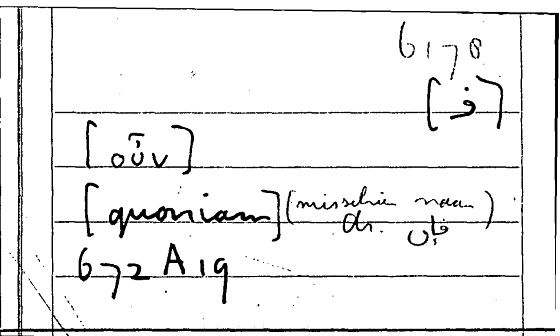 6178
[ف]
[οὖν]
[quoniam] (misschien naar
Ar. فإن)
672 A 19